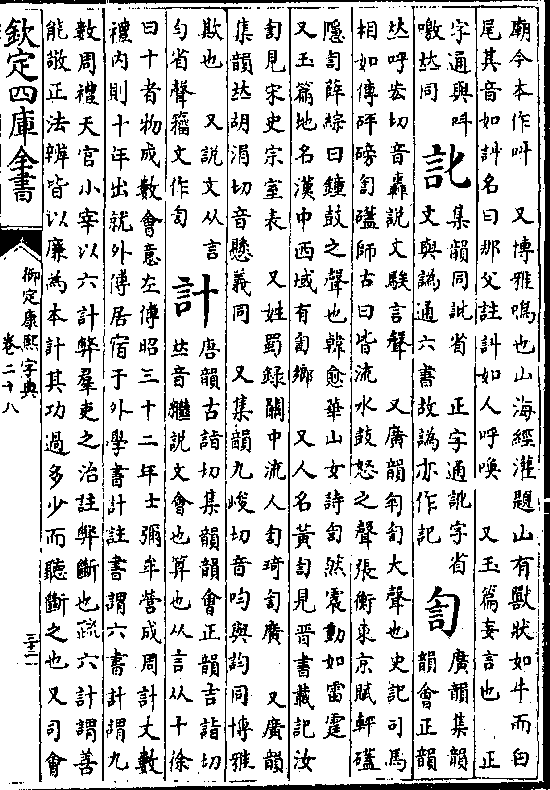 廟今本作叫　又博雅鳴也山海經灌題山有獸狀如牛而白
尾其音如訆名曰那父註訆如人呼喚　又玉篇妄言也　正
字通與叫
噭𠀤同
集韻同訛省　正字通訛字省
文與譌通六書故譌亦作訛
訇
廣韻集韻
韻會正韻
𠀤呼宏切音轟說文駭言聲　又廣韻訇訇大聲也史記司馬
相如傳砰磅訇礚師古曰皆流水鼓怒之聲張衡東京賦軯礚
隱訇薛綜曰鐘鼓之聲也韓愈華山女詩訇然震動如雷霆
又玉篇地名漢中西域有訇鄉　又人名黃訇見晉書載記汝
訇見宋史宗室表　又姓蜀錄關中流人訇琦訇廣　又廣韻
集韻𠀤胡涓切音懸義同　又集韻九峻切音呁與䛊同博雅
欺也　又說文从言
勻省聲籀文作訇
計
唐韻古詣切集韻韻會正韻吉詣切
𠀤音繼說文會也算也从言从十徐
曰十者物成數會意左傳昭三十二年士彌牟營成周計丈數
禮內則十年出就外傅居宿于外學書計註書謂六書計謂九
數周禮天官小宰以六計弊羣吏之治註弊斷也疏六計謂善
能敬正法辨皆以廉為本計其功過多少而聽斷之也又司會
欽定四庫全書
御定康熙字典
卷二十八
三十二